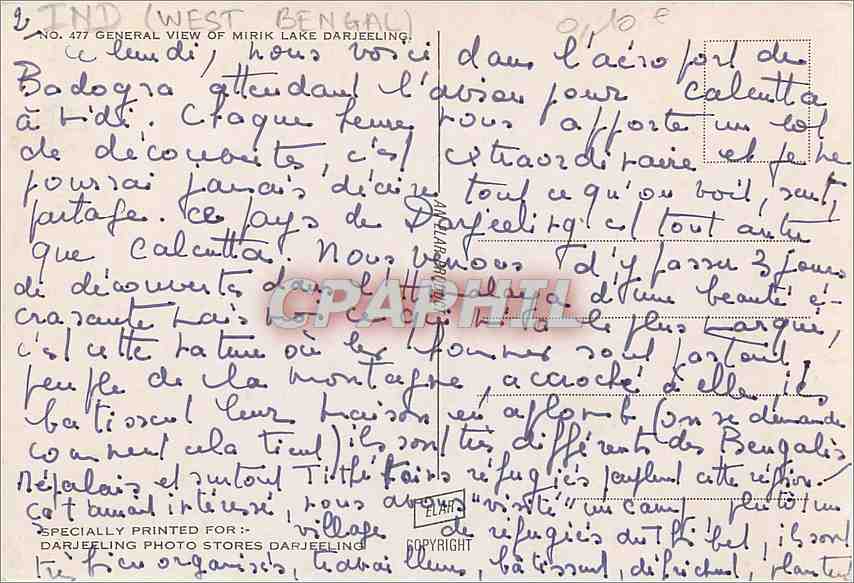 2, IND (WEST BENGAL) 0,10 €
NO. 477 GENERAL VIEW OF MIRIK LAKE DARJEELING.
Ce lundi, nous voici dans l'aéroport de
Badogra attendant l'avion pour Calcutta
à midi. Chaque heure nous apporte un lot
de découvertes, c'est extraordinaire et je ne
pourrai jamais décrire tout ce qu'on voit, sent,
partage. Ce pays de Darjeeling est tout autre
que Calcutta. Nous venons d'y passer 3 jours
de découvertes dans l'Himalaya d'une beauté é-
crasante mais ce qui m'a le plus marqué,
c'est cette nature où les hommes sont partout,
peuple de la montagne, accroché à elle, ils
batissent leur maison en aplomb (on se demande
comment cela tient) ils sont très différents des Bengalis
Népalais et surtout Tibétains réfugiés peuplent cette région.
ça t'aurait intéressé, nous avons "visité" un camp plutôt un
village de réfugiés du Thibet, ils sont
très bien organisés, travailleurs, bâtissent, défrichent, plantent
ANGELAR
ELAR
COPYRIGHT
SPECIALLY PRINTED FOR :-
DARJEELING PHOTO STORES DARJEELING
CPAPHIL